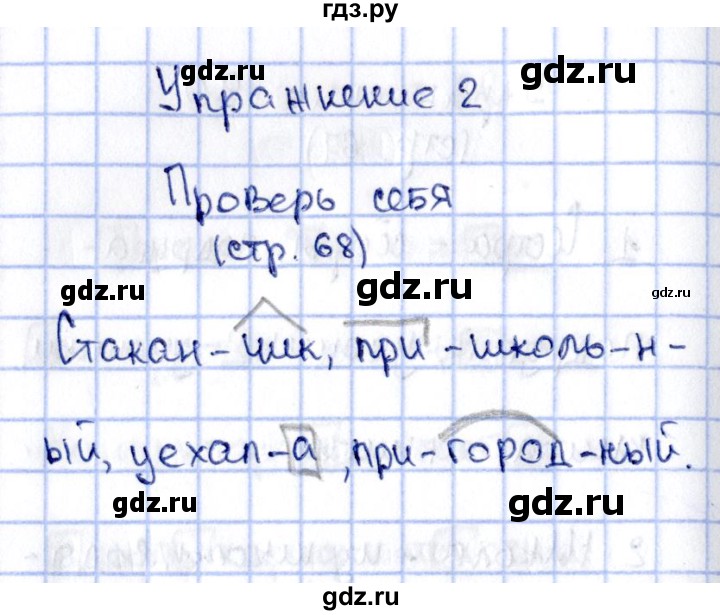 гдз.ру
gdz.ru
gdz.ru
Упражнение 2
gdz.ru
Проверь себя
(стр. 68)
gdz.ru
gdz.ru
gdz.ru
Стакан-чик, при-школь-н-
ый, уехал-а, при-город-ный.
gdz.ru
gdz.ru
gdz.ru